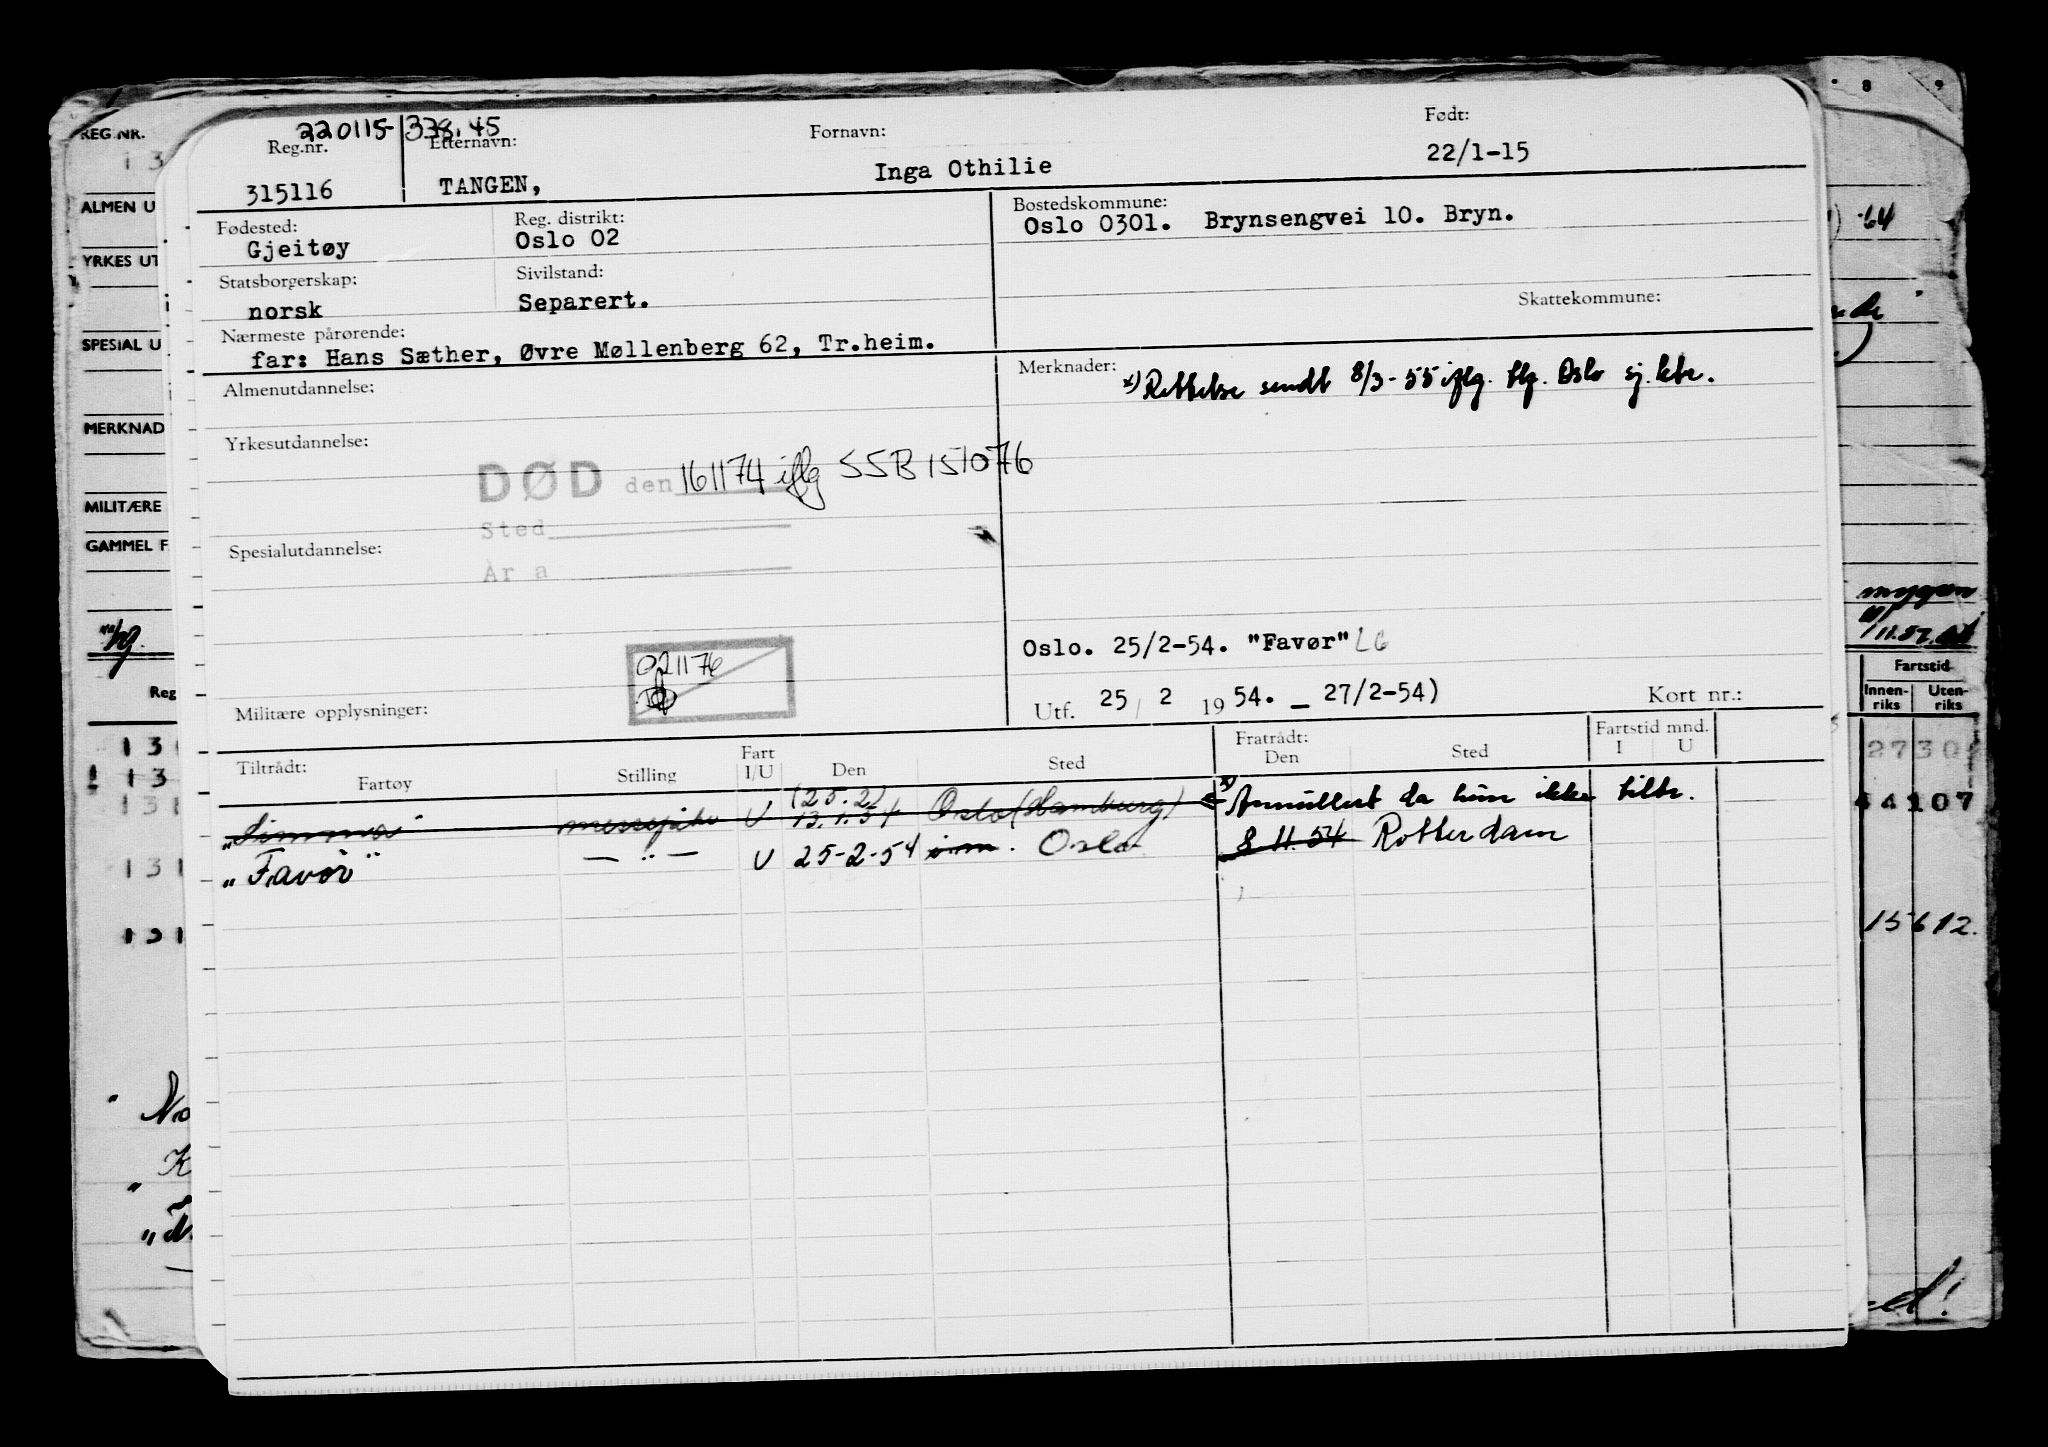 220115-338.45
Reg.nr. Etternavn: Fornavn: Født:
315116 TANGEN, Inga Othilie 22/1-15
Fødested: Reg. distrikt: Bostedskommune:
Gjeitøy Oslo 02 Oslo 0301. Brynsengvei 10. Bryn.
Statsborgerskap: Sivilstand:
norsk Separert.
Skattekommune:
Nærmeste pårørende:
far: Hans Sæther, Øvre Møllenberg 62, Tr.heim.
Almenutdannelse: Merknader:
x) Rettelse sendt 8/3-55 iflg. Oslo sj.ktr.
Yrkesutdannelse:
DØD den 161174 iflg SSB 151076
Sted
År a
Spesialutdannelse:
021176
Oslo. 25/2-54. "Favør" LG
Utf. 25/2 1954. _ 27/2-54) Kort nr.:
Militære opplysninger:
Tiltrådt: Fart Fratrådt: Fartstid mnd.
Fartøy Stilling I/U Den Sted Den Sted I U
(25.2)
U 13.1.54 Oslo (Hamburg) x) Annullert da hun ikke tiltr.
"Favør" — " — U 25-2-54 Oslo 8.11.54 Rotterdam
REG NR.
ALMEN U
YRKES UT
SPESIAL U
MERKNAD
MILITÆRE
GAMMEL F
Reg
131
131
131
131
131
No
K
8 9
-64
Fartstid
Innen-riks Uten-riks
27301
44107
15612.